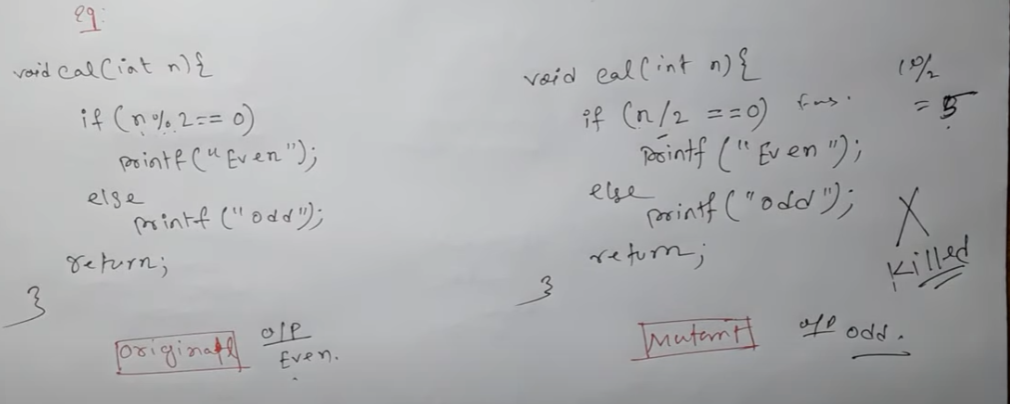 eg:
void cal(int n){
if (n%2==0)
printf("Even");
else
printf("odd");
return;
}
Original
O/P
Even.
void cal(int n){
if (n/2 ==0)
printf("Even");
else
printf("odd");
return;
}
Mutant
o/p odd.
10/2
= 5
X
Killed